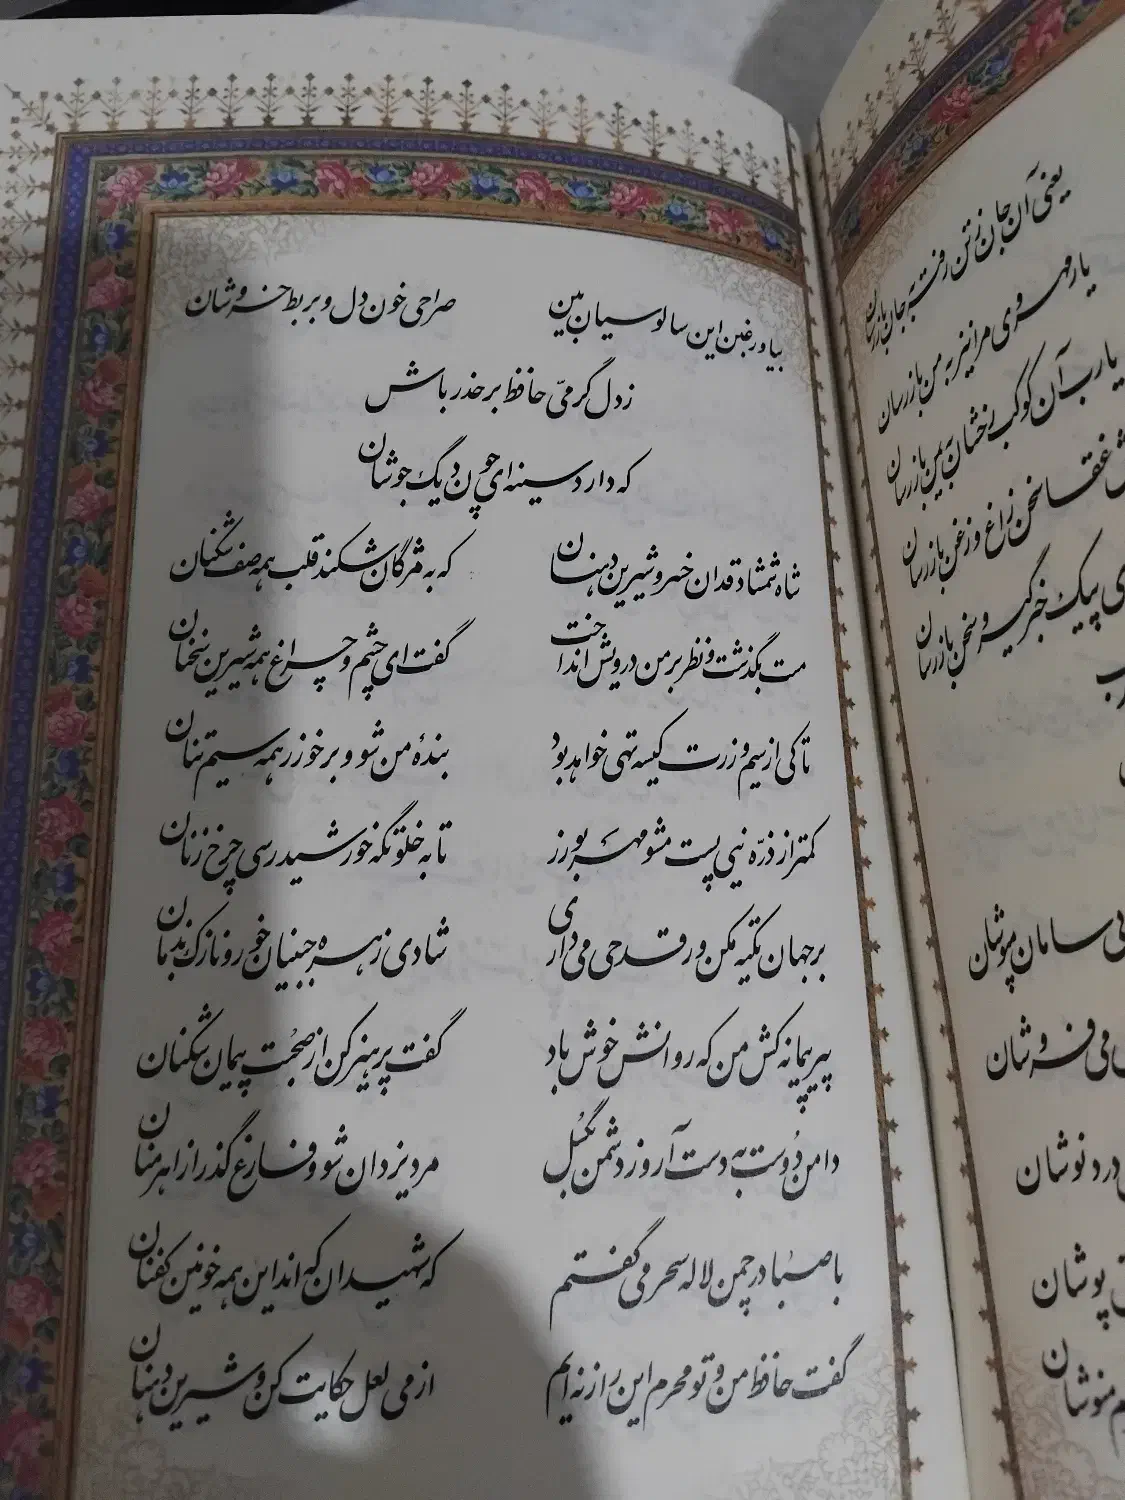 یعنی آن جان ز تن رفته به جان بازرسان
یار مهروی مرا نیز به من بازرسان
یارب آن کوکب رخشان به یمن بازرسان
عنقا سخن زاغ و زغن بازرسان
پیک خبرگیر و سخن بازرسان
سامان مپوشان
می فروشان
دردنوشان
پوشان
منوشان
بیا و ز غبن این سالوسیان بین صراحی خون دل و بربط خروشان
ز دل گرمیّ حافظ بر حذر باش
که دارد سینه‌ای چون دیگ جوشان
شاه شمشادقدان خسرو شیرین دهنان که به مژگان شکند قلب همه صف شکنان
مست بگذشت و نظر بر من درویش انداخت گفت ای چشم و چراغ همه شیرین سخنان
تا کی از سیم و زرت کیسه تهی خواهد بود بندهٔ من شو و برخور ز همه سیم تنان
کمتر از ذرّه نیی پست مشو مهر بورز تا به خلوتگه خورشید رسی چرخ زنان
بر جهان تکیه مکن ور قدحی می داری شادی زهره جبینان خور و نازک بدنان
پیر پیمانه کش من که روانش خوش باد گفت پرهیز کن از صحبت پیمان شکنان
دامن دوست به دست آر و ز دشمن بگسل مرد یزدان شو و فارغ گذر از اهرمنان
با صبا در چمن لاله سحر می گفتم که شهیدان که اند این همه خونین کفنان
گفت حافظ من و تو محرم این راز نه ایم از می لعل حکایت کن و شیرین دهنان